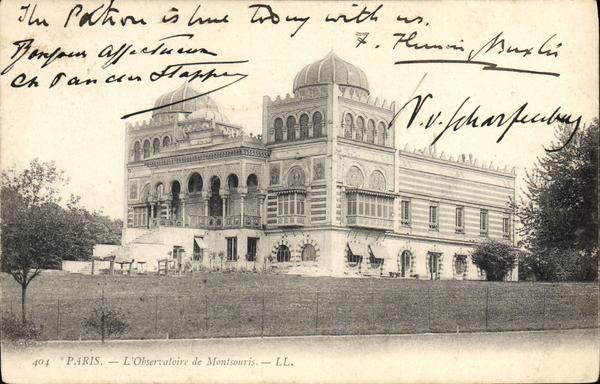 The Pothon is here today with us.
Bonjour affectueux
Ch van der Stappen
F.
V. v. Scharfenberg
404 PARIS. — L'Observatoire de Montsouris. — LL.